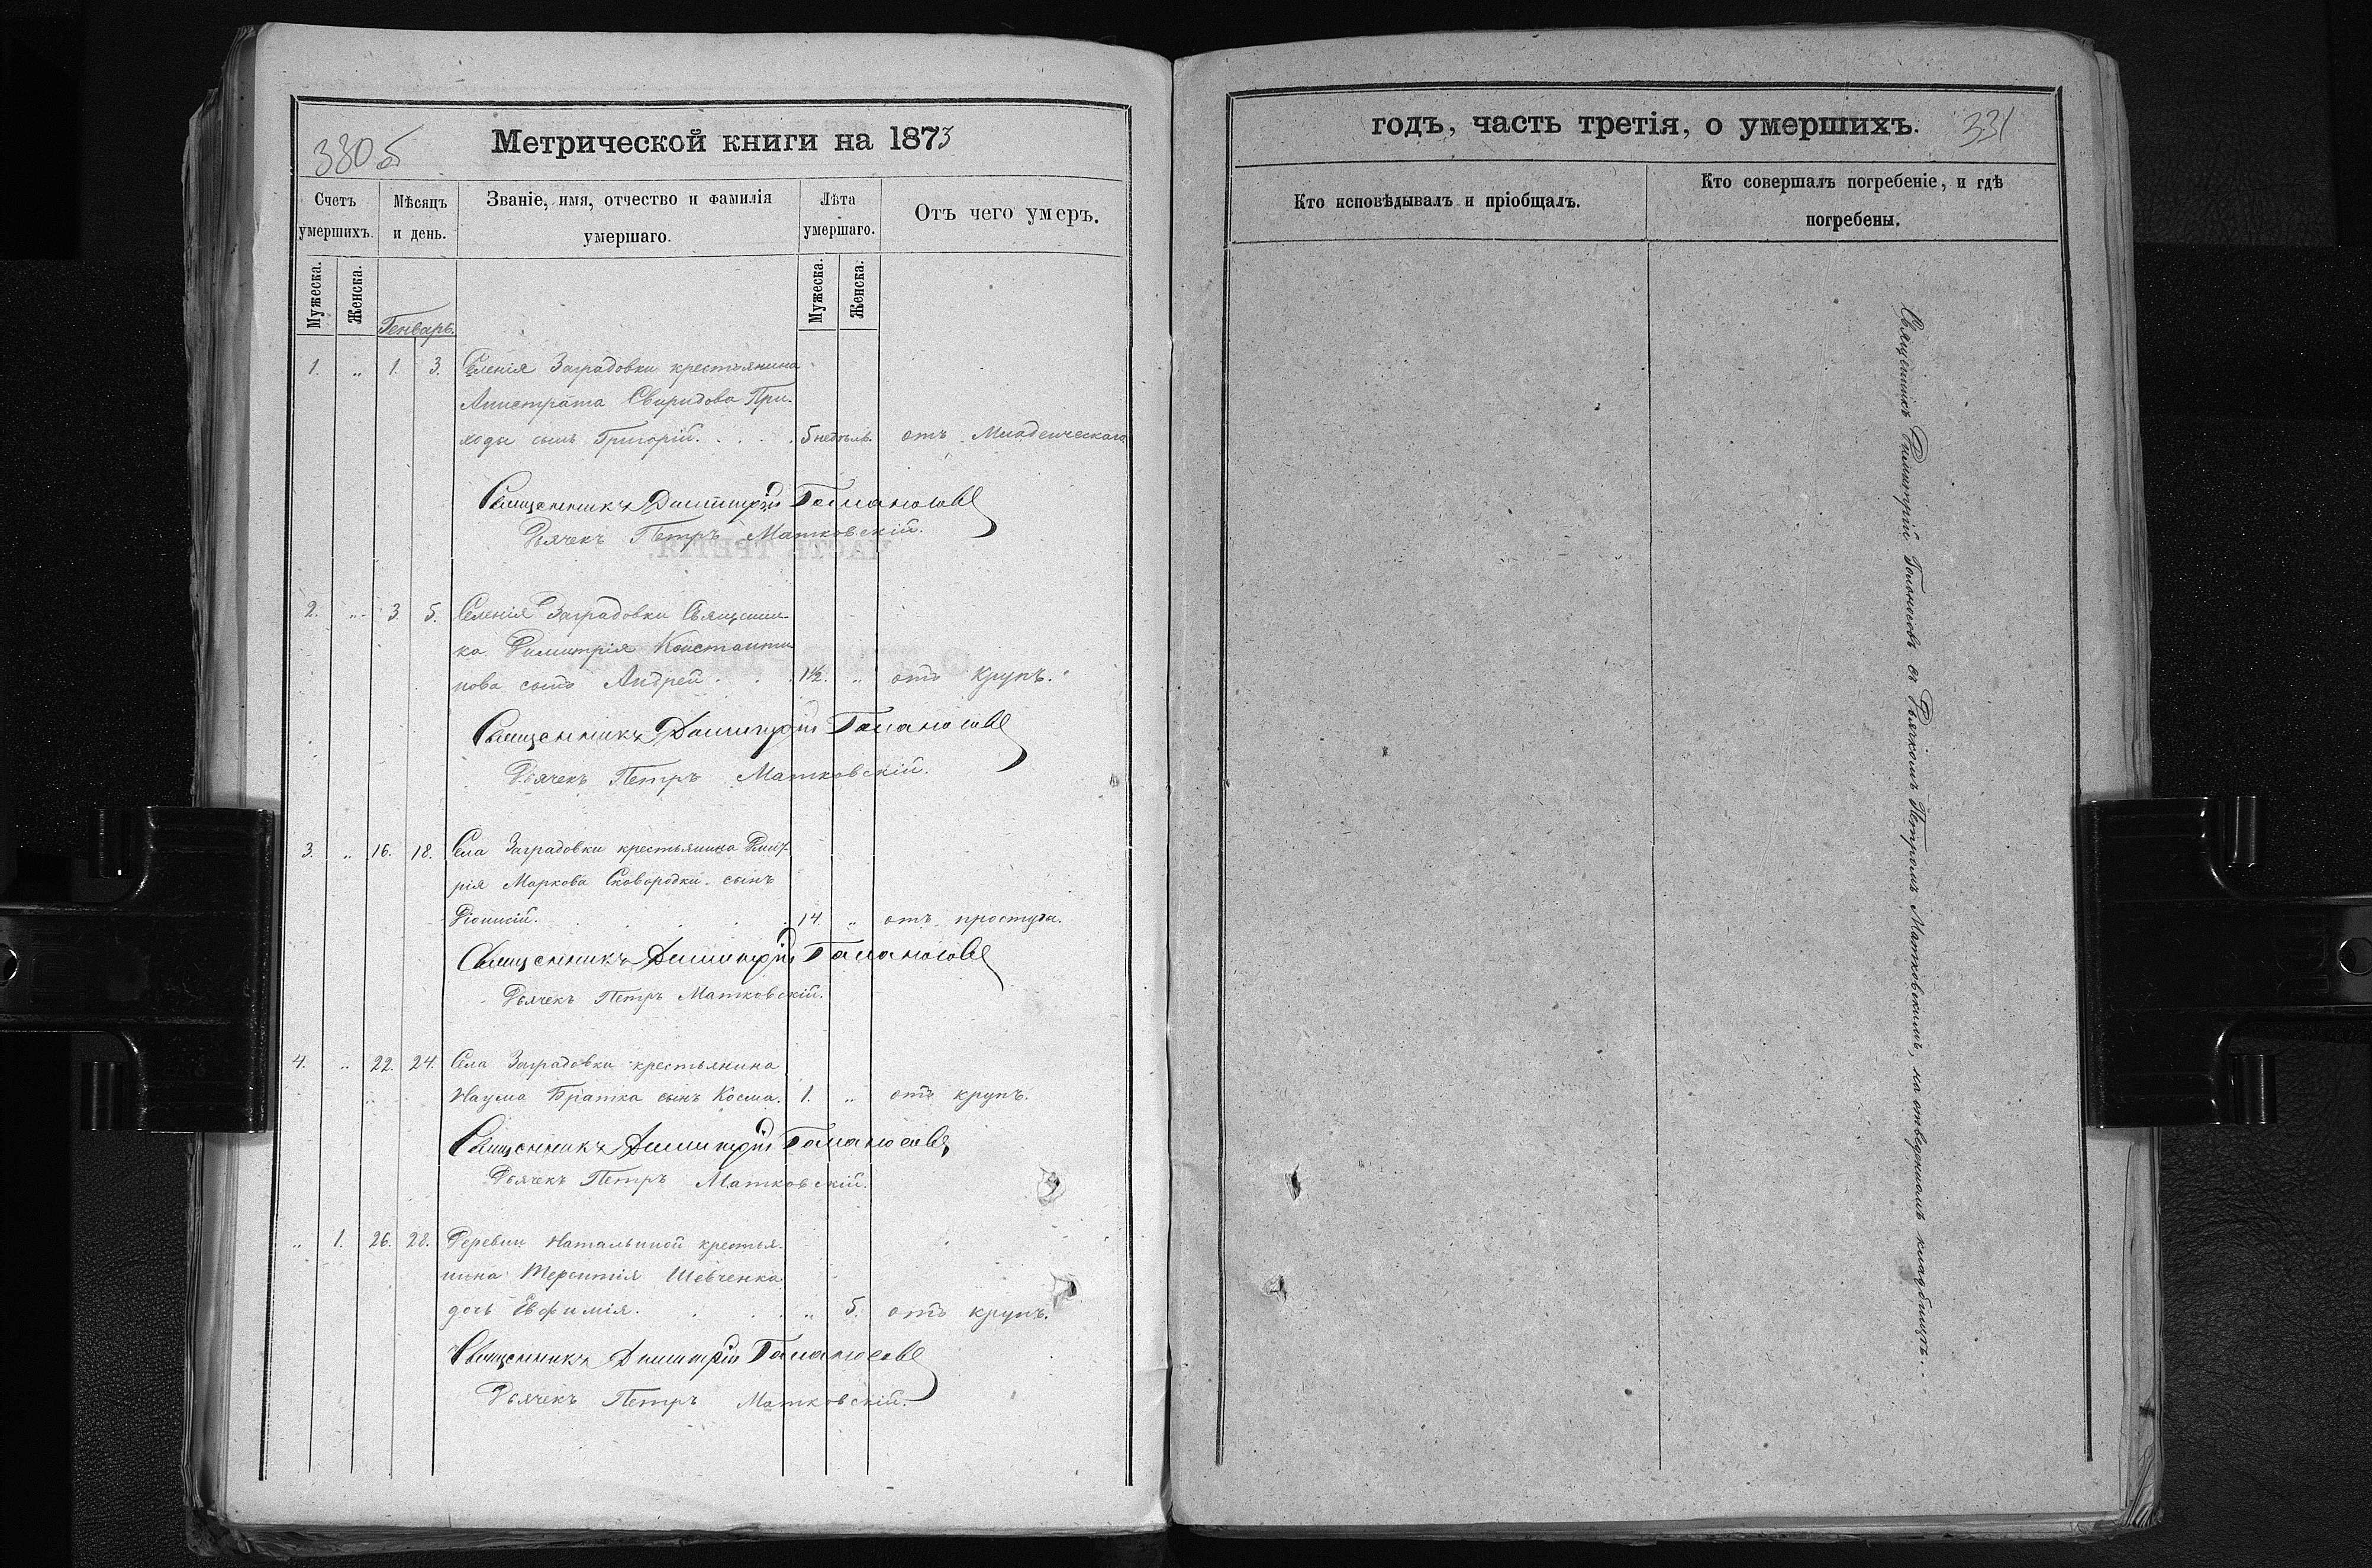 330 б
Метрической книги на 1873
Счетъ умершихъ.
Мѣсяцъ и день.
Званіе, имя, отчество и фамилія умершаго.
Лѣта умершаго.
Отъ чего умеръ.
Мужеска.
Женска.
Генварь.
Мужеска.
Женска.
1. „ 1. 3. Селенія Заградовки крестьянина
Свиридова При-
ходы сынъ Григорій. 5 недѣль. отъ Младенческаго
Священникъ Димитрій
Дьячекъ Петръ Матковскій.
2. „ 3. 5. Селенія Заградовки Священни-
ка Димитрія Константи
нова сынъ Андрей 1½. „ отъ крупъ.
Священникъ Димитрій
Дьячекъ Петръ Матковскій.
3. „ 16. 18. Села Заградовки крестьянина Димит-
рія Маркова Сковородки сынъ
Діонисій. 14. „ отъ простуды.
Священникъ Димитрій
Дьячекъ Петръ Матковскій.
4. „ 22. 24. Села Заградовки крестьянина
Наума Братка сынъ Косма. 1. „ отъ крупъ.
Священникъ Димитрій
Дьячекъ Петръ Матковскій.
„ 1. 26. 28. Деревни Натальиной крестья-
нина Терентія Шевченка
дочь Евфимія. „ 5. отъ крупъ.
Священникъ Димитрій
Дьячекъ Петръ Матковскій.
годъ, часть третія, о умершихъ.
331
Кто исповѣдывалъ и пріобщалъ.
Кто совершалъ погребеніе, и гдѣ
погребены.
Священникъ Димитрій съ Дьячкомъ Петромъ Матковскимъ, на отведенномъ кладбищѣ.